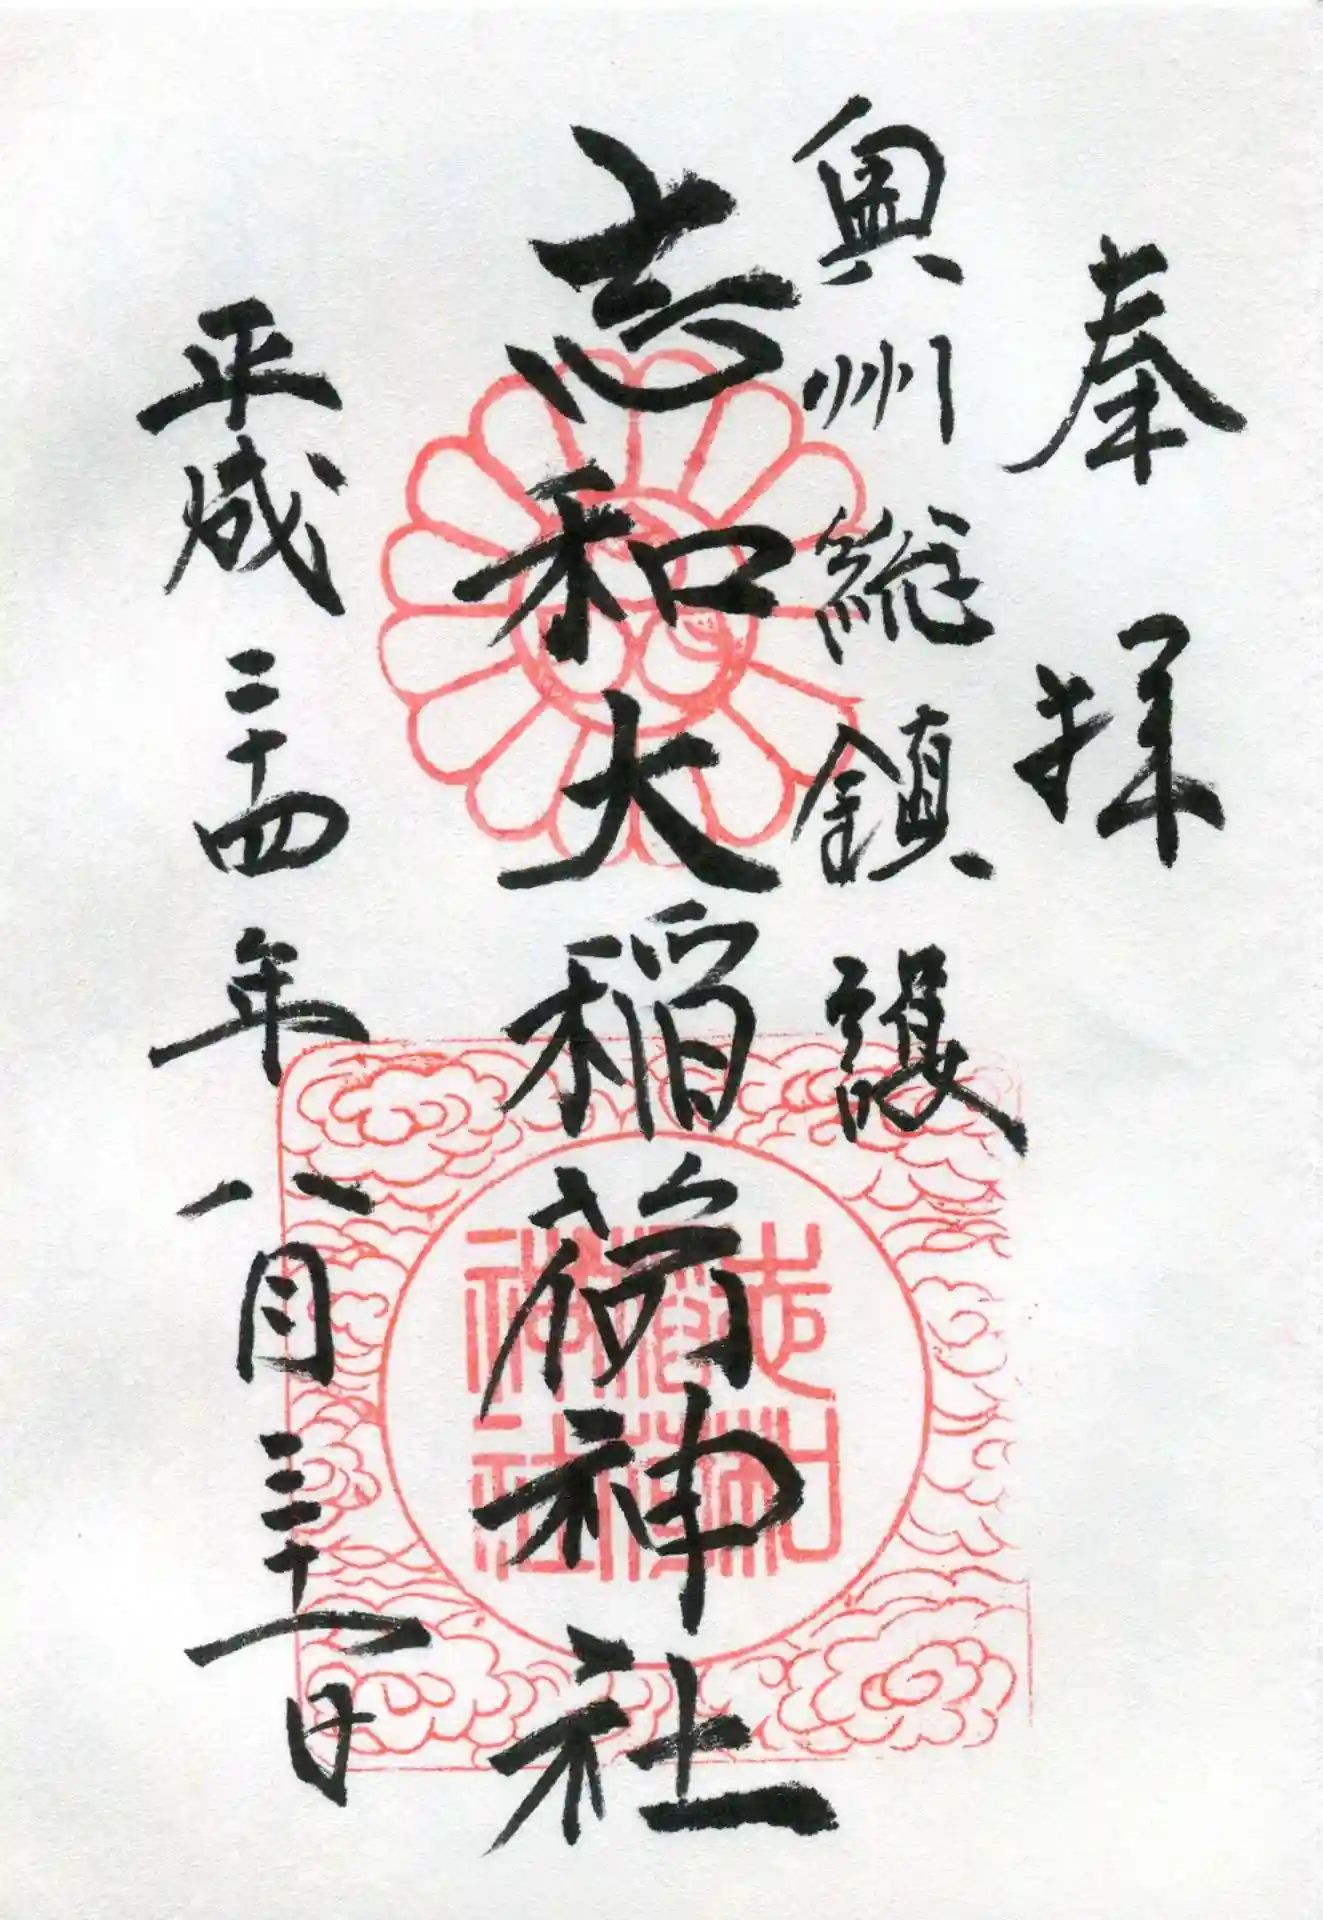 奉拝
奥州総鎮護
志和大稲荷神社
平成二十四年八月三十一日
志和
稲荷
神社